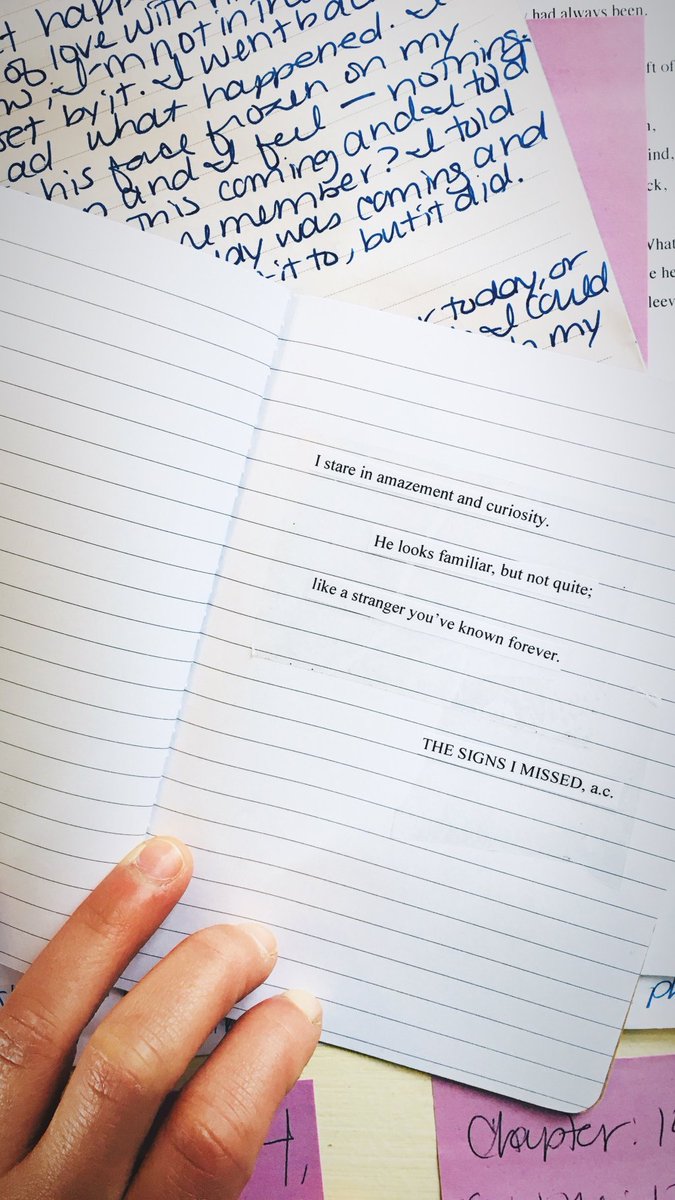 had always been.
of love with
I'm not in
set by it. I went
what happened. I
his face frozen on my
and I feel — nothing.
This coming and I told
remember? I told
was coming and
it to, but it did.
today, or
I could
my
ft of
ind,
ck,
What
e he
leev
I stare in amazement and curiosity.
He looks familiar, but not quite;
like a stranger you've known forever.
THE SIGNS I MISSED, a.c.
Chapter: 1